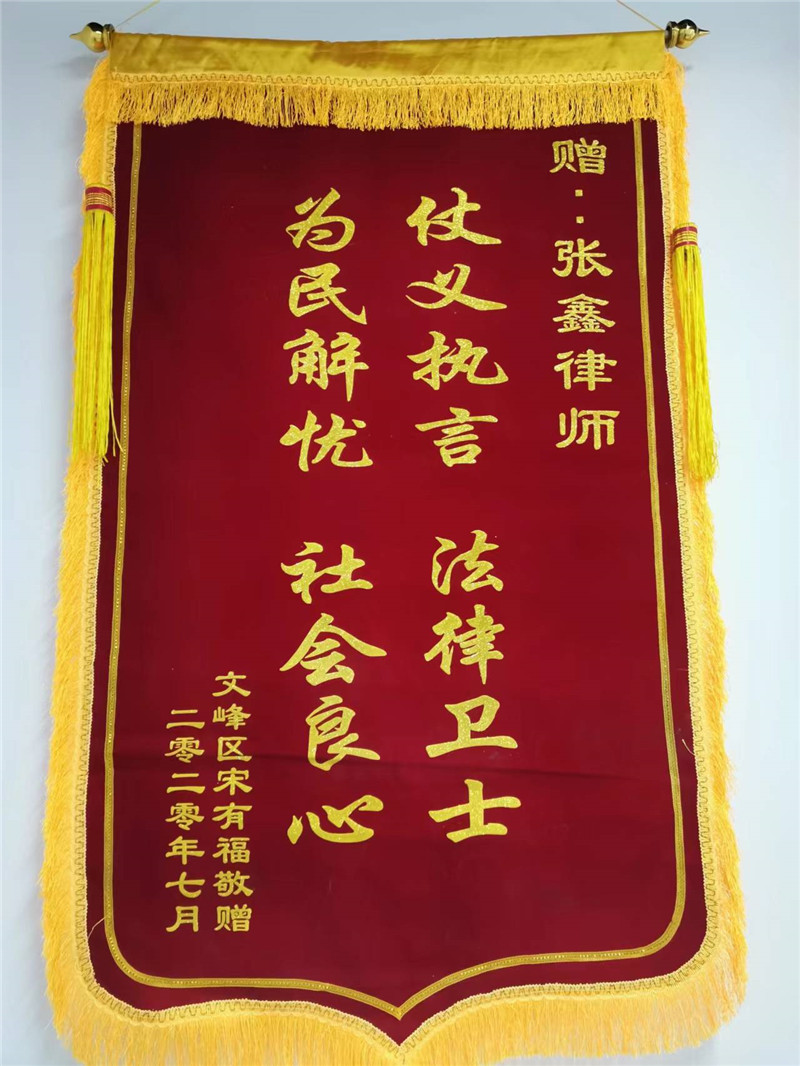 赠：张鑫律师
仗义执言 法律卫士
为民解忧 社会良心
文峰区宋有福敬赠
二零二零年七月